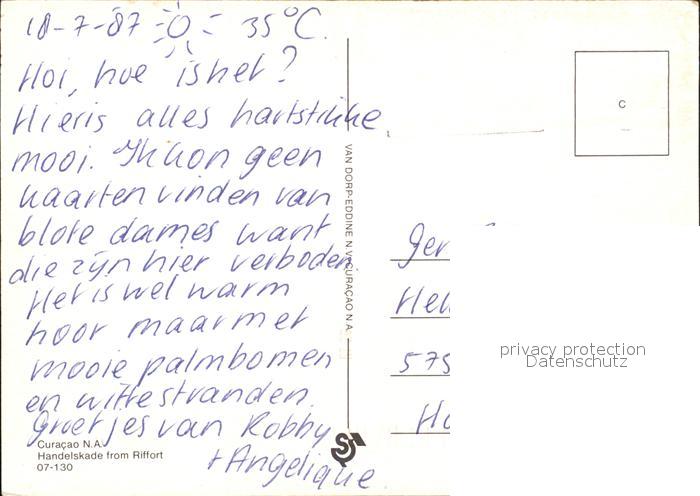 18-7-87 35°C.
Hoi, hoe is het?
Hier is alles hartstikke
mooi. Ik kon geen
kaarten vinden van
blote dames want
die zijn hier verboden.
Het is wel warm
hoor maar met
mooie palmbomen
en witte stranden.
Groetjes van Robby
+ Angelique.
Curaçao N.A.
Handelskade from Riffort
07-130
VAN DORP-EDDINE N.V. CURAÇAO N.A.
C
Ger
575
privacy protection
Datenschutz